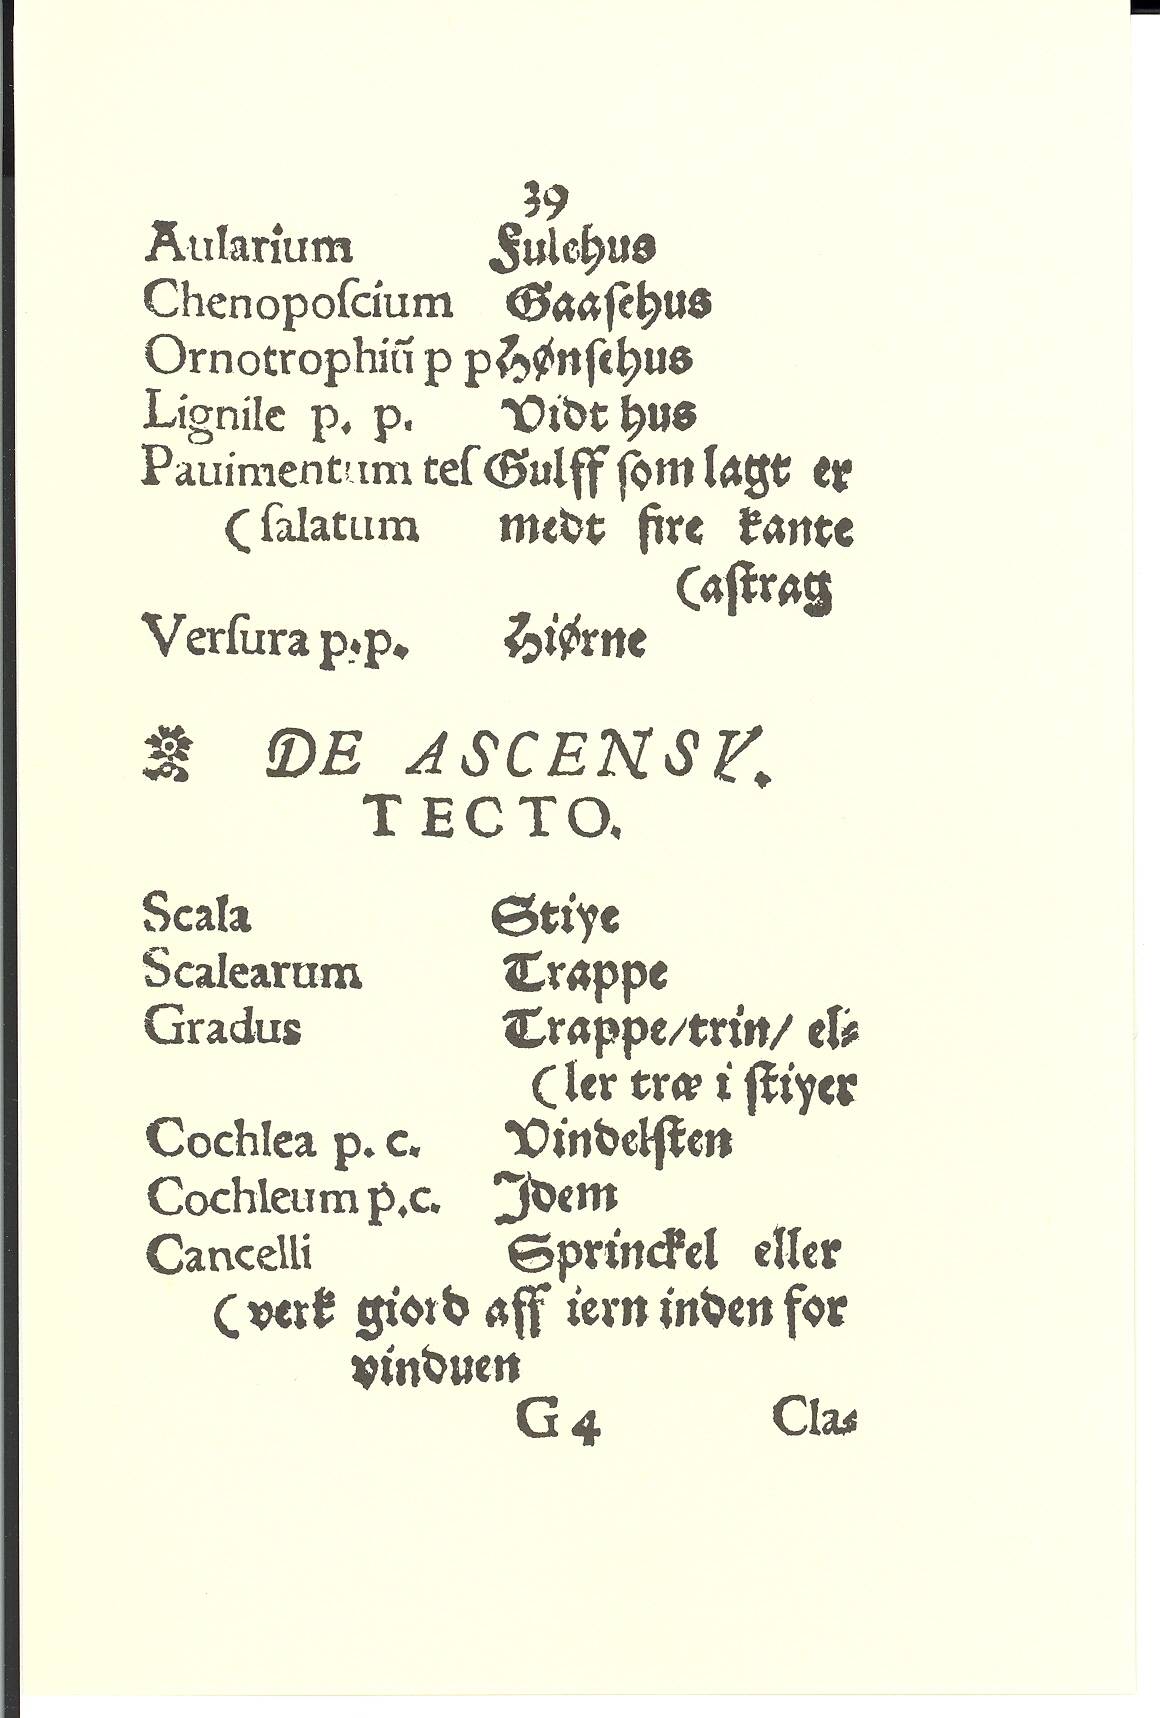 39
Aularium Fulehus
Chenopoſcium Gaaſehus
Ornotrophiū p p Hønſehus
Lignile p. p. Vidt hus
Pauimentum teſ Gulff ſom lagt er
(ſalatum medt fire kante
(aſtrag
Verſura p.p. Hiørne
DE ASCENSV.
TECTO.
Scala Stiye
Scalearum Trappe
Gradus Trappe/trin/ el⸗
(ler træ i ſtiyer
Cochlea p. c. Vindelſten
Cochleum p.c. Idem
Cancelli Sprinckel eller
(verk giord aff iern inden for
vinduen
G 4 Clas